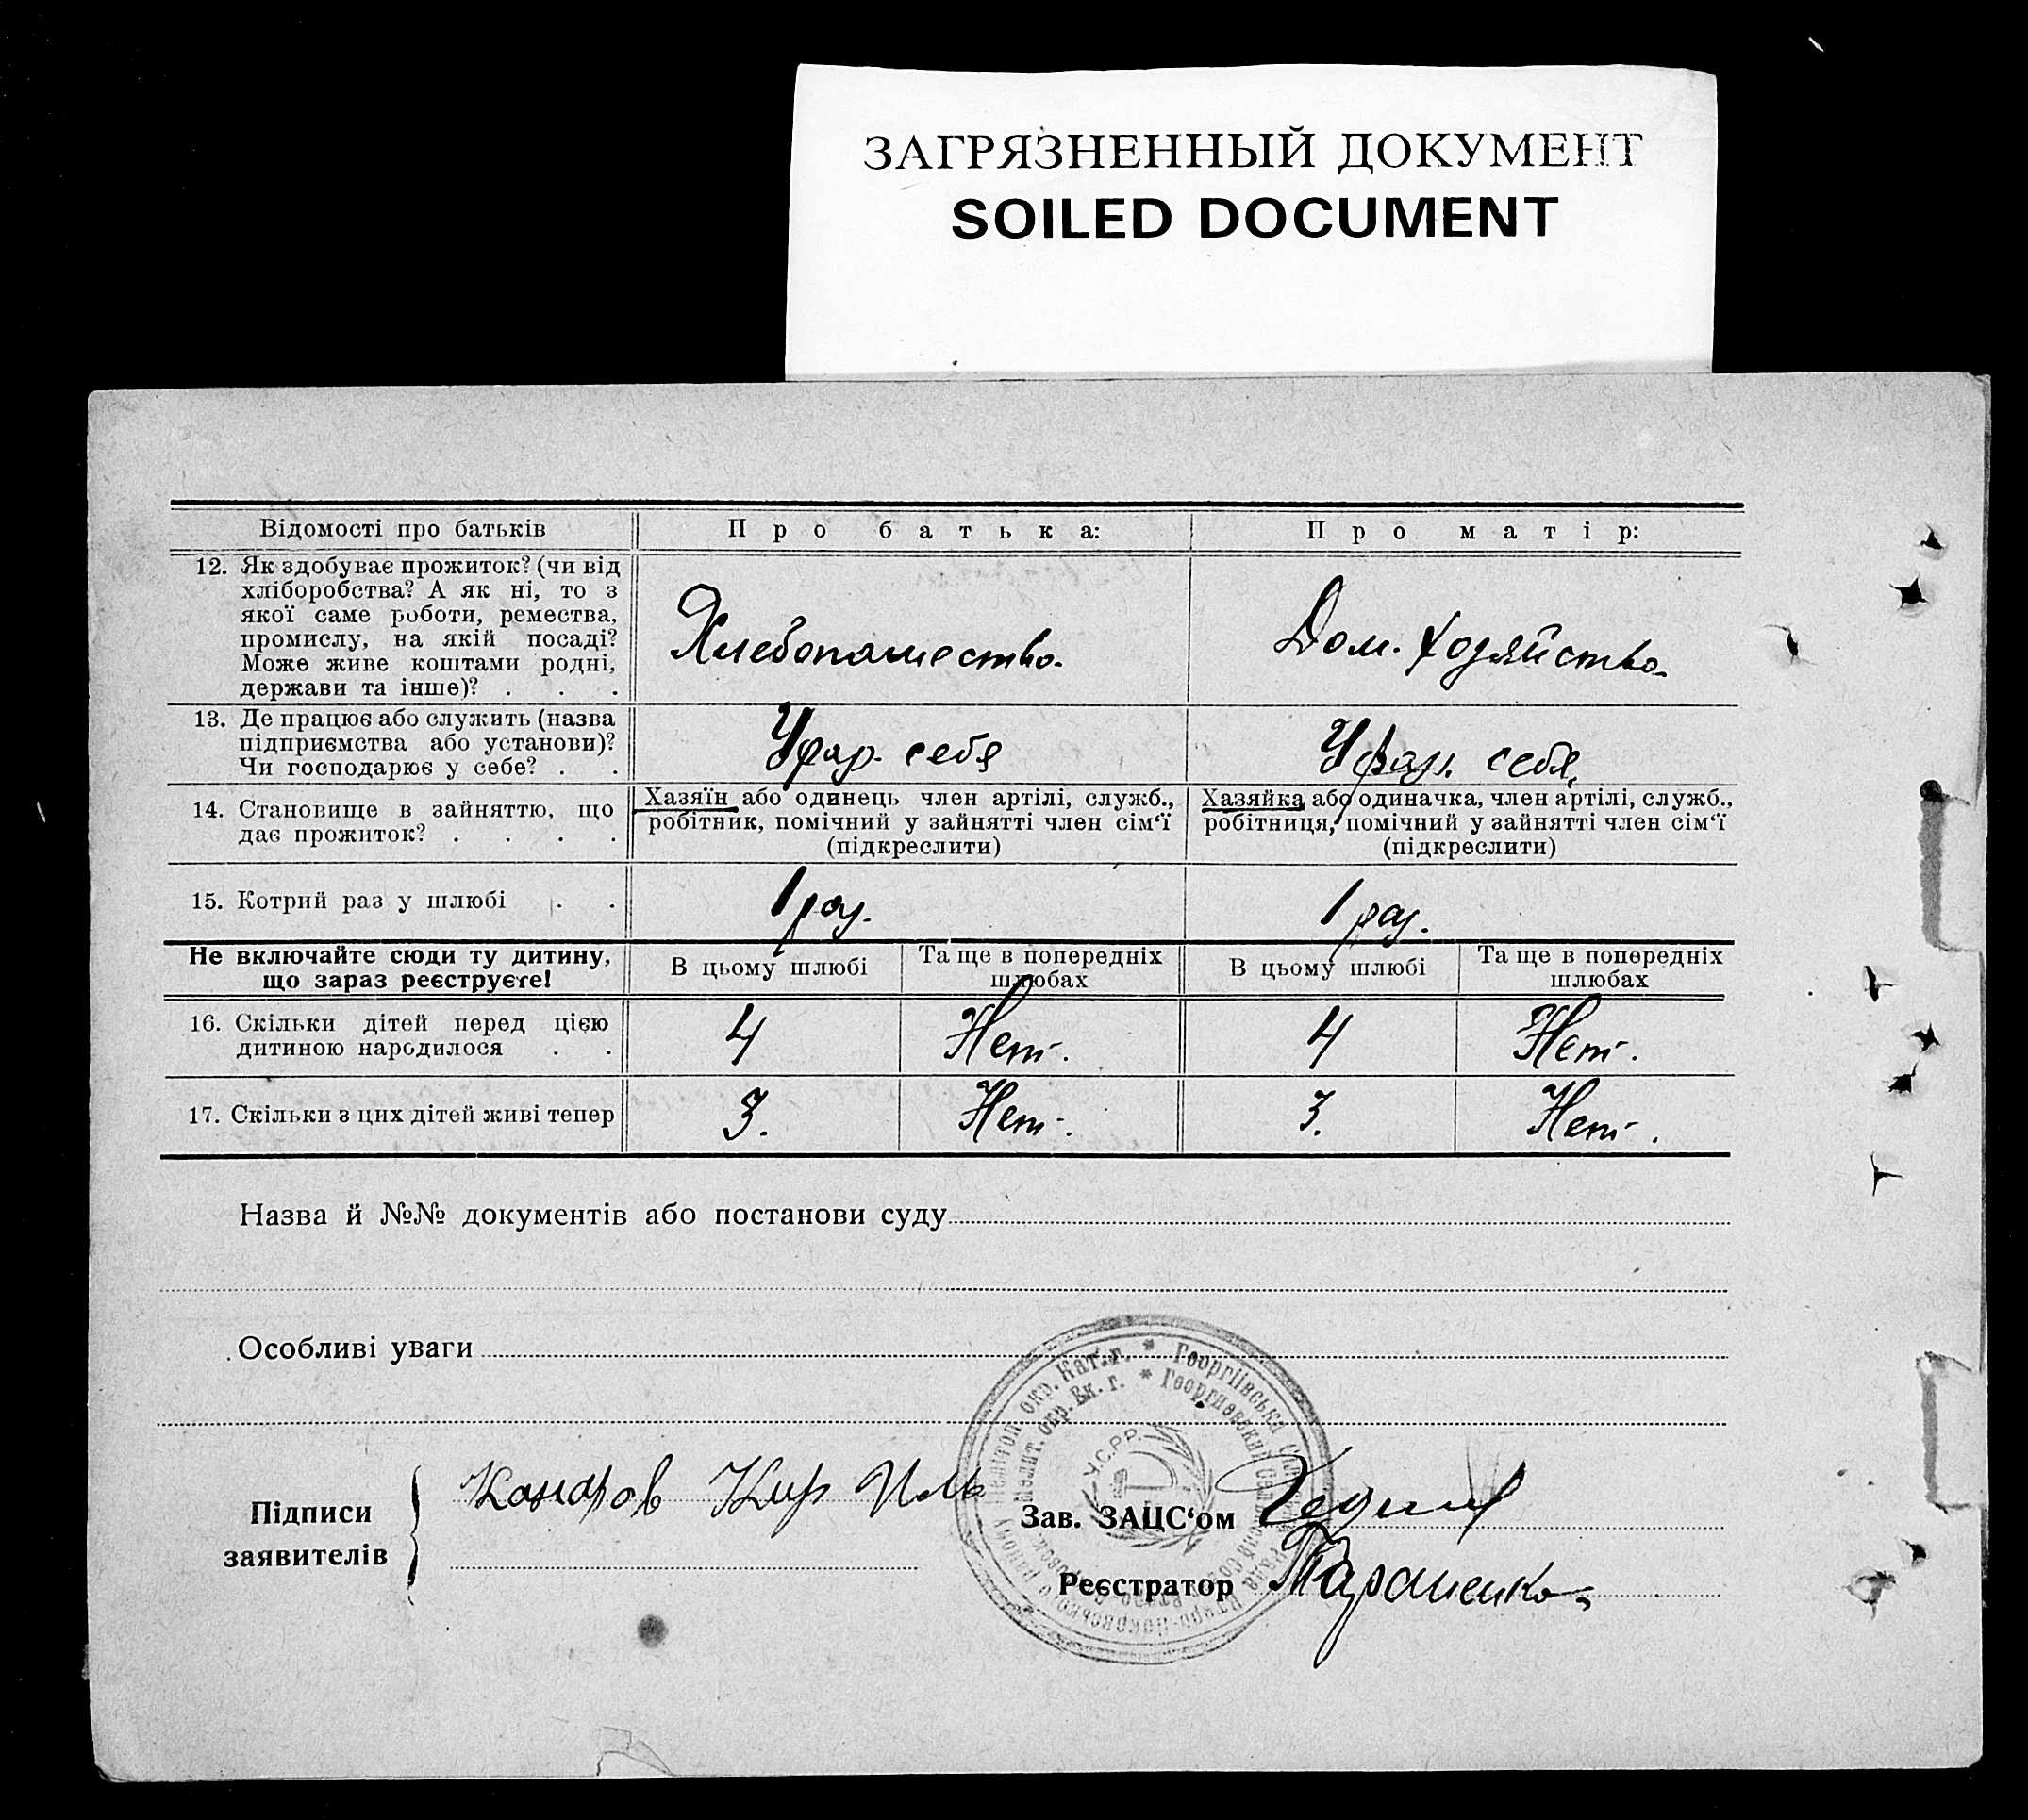 ЗАГРЯЗНЕННЫЙ ДОКУМЕНТ
SOILED DOCUMENT
Відомості про батьків
Про батька:
Про матір:
12. Як здобуває прожиток? (чи від
хліборобства? А як ні, то з
якої саме роботи, ремества,
промислу, на якій посаді?
Може живе коштами родні,
держави та інше)? . . .
Хлебопашество.
Дом. Хозяйство.
13. Де працює або служить (назва
підприємства або установи)?
Чи господарює у себе? . .
У себя
У себя
14. Становище в зайняттю, що
дає прожиток? . . . .
Хазяїн або одинець член артілі, служб.,
робітник, помічний у зайнятті член сім‘ї
(підкреслити)
Хазяйка або одиначка, член артілі, служб.,
робітниця, помічний у зайнятті член сім‘ї
(підкреслити)
15. Котрий раз у шлюбі . .
1 раз.
1 раз.
Не включайте сюди ту дитину,
що зараз реєструєте!
В цьому шлюбі
Та ще в попередніх
шлюбах
В цьому шлюбі
Та ще в попередніх
шлюбах
16. Скільки дітей перед цією
дитиною народилося . .
4
Нет.
4
Нет.
17. Скільки з цих дітей живі тепер
3.
Нет.
3.
Нет.
Назва й №№ документів або постанови суду
Особливі уваги
Мелітоп. окр. Кат. г. * Георгіївська
Мелит. окр. Ек. г. * Георгиевский
У.С.Р.Р.
Підписи
заявителів
Кир Иль
Зав. ЗАЦС‘ом
Реєстратор
Тараненко